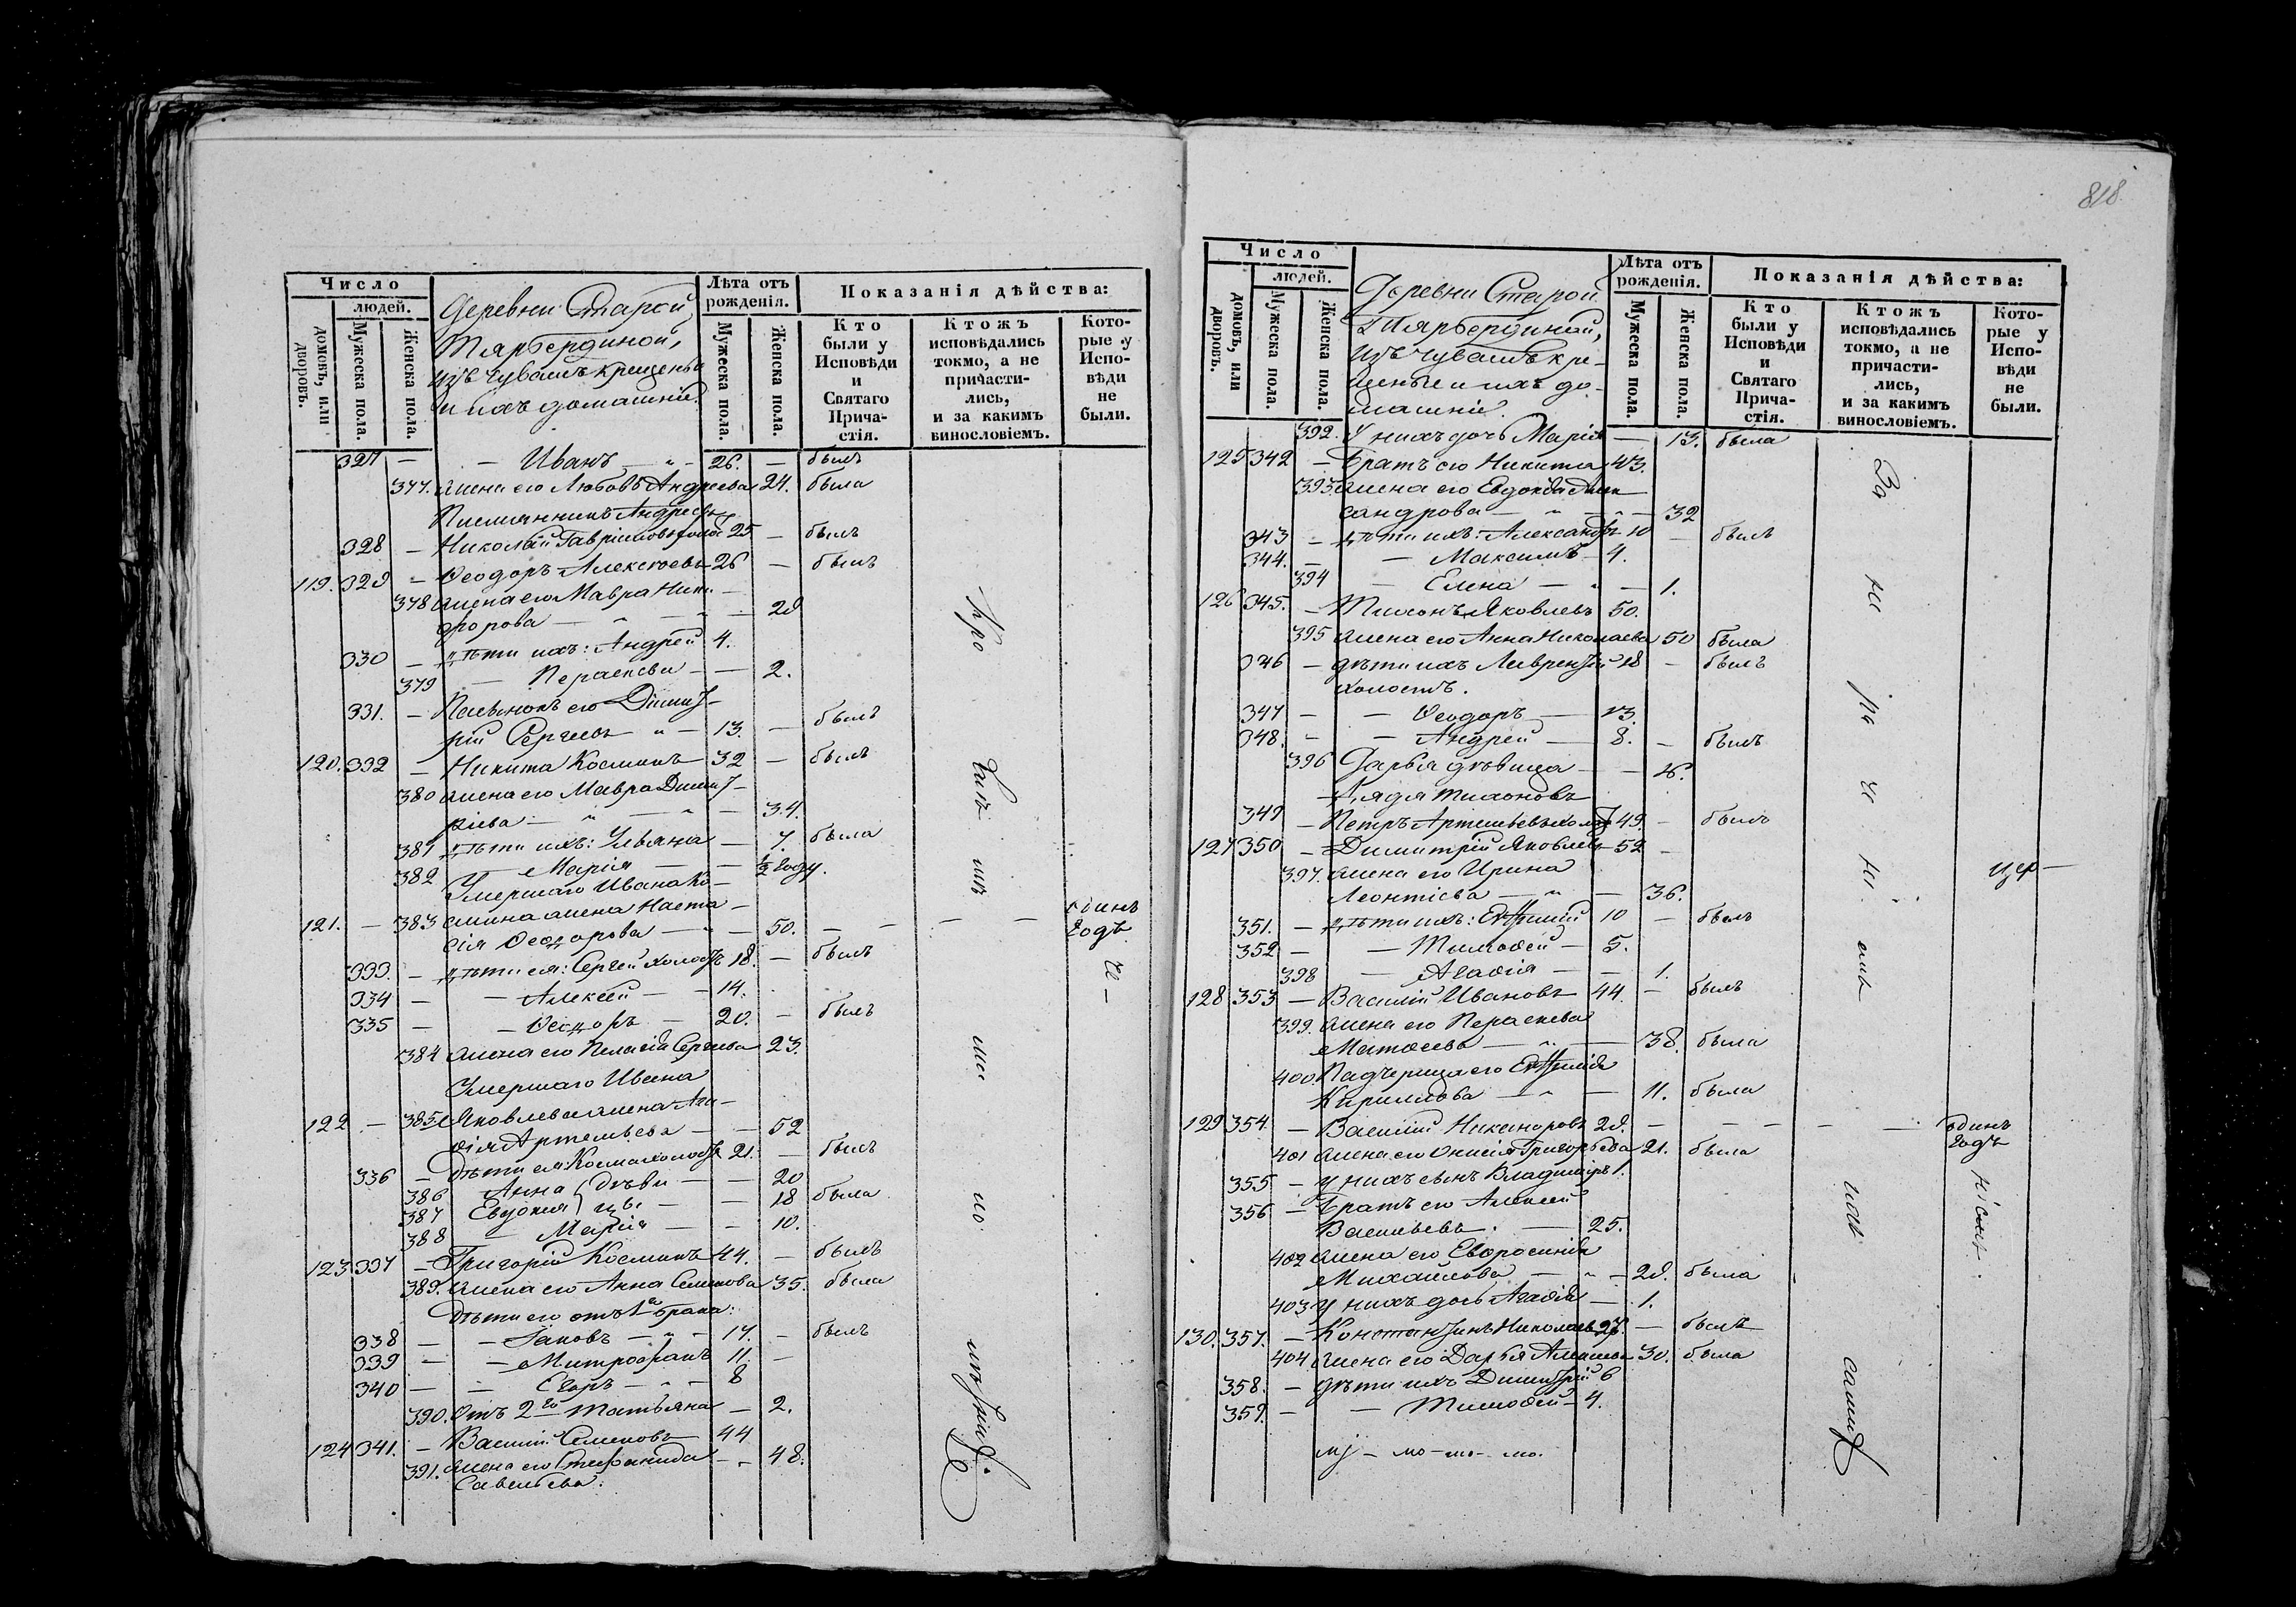 818
Число
людей.
домовъ, или дворовъ.
Мужеска пола.
Женска пола.
Деревни Старой
Тярбердиной,
изъ Чувашъ крещены
и ихъ домашніе.
Лѣта отъ рожденія.
Мужеска пола.
Женска пола.
Показанія дѣйства:
Кто были у Исповѣди и Святаго Прича-стія.
Ктожъ исповѣдались токмо, а не причасти-лись, и за какимъ винословіемъ.
Кото-рые у Испо-вѣди не были.
327 — — Иванъ — „ — 26. — былъ
377. жена его Любовь Андреева 24. была
Племянникъ Андрея
328 — Николай Гавриловъ холост 25 — былъ
119. 329 — Ѳеодоръ Алексѣевъ 26 — былъ
378 жена его Мавра Ники-
форова — „ — — 28
330 — дѣти ихъ: Андрей 4.
379 — Параскева — — 2.
331. — его Димит-
рій Сергѣевъ „ — 13. — былъ
120. 332 — Никита Косминъ 32 — былъ
380 жена его Мавра Димит-
ріева — „ — „ — 34.
381 дѣти ихъ: Ульяна — 7. была
382 — Марія — — ½ году.
Умершаго Ивана Ко-
121. — 383 смина жена Наста-
сія Ѳеодорова — „ — 50. — — — — единъ годъ
333. — дѣти ея: Сергѣй холостъ 18. — былъ
334 — — Алексѣй — — 14.
335 — — Ѳеодоръ — 20. — былъ
384 жена его Пелагія Сергѣева 23.
Умершаго Ивана
122 — 385 Яковлева жена Ага-
ѳія Артемьева — — 52
336 — Дѣти ея Косма холостъ 21. — былъ
386 Анна } дѣви- — — 20
387 Евдокия } цы — — 18 была
388 — Марія — — 10.
123 337 — Григорій Косминъ 44. — былъ
389. жена его Анна Семенова 35. была
Дѣти его отъ 1го брака:
338 — — Іаковъ — „ — 17. — былъ
339 — — Митрофанъ 11. —
340 — — Егоръ — „ — 8
390. Отъ 2го Татьяна — 2.
124 341. — Василій Семеновъ 44
391. жена его Степанида — — 48.
Савельева.
Число
людей.
домовъ, или дворовъ.
Мужеска пола.
Женска пола.
Деревни Старой
Тярбердиной,
изъ Чувашъ кре-
щеные и ихъ до-
машніе.
Лѣта отъ рожденія.
Мужеска пола.
Женска пола.
Показанія дѣйства:
Кто были у Исповѣди и Святаго Прича-стія.
Ктожъ исповѣдались токмо, а не причасти-лись, и за какимъ винословіемъ.
Кото-рые у Испо-вѣди не были.
392. У нихъ дочь Марія — 13. была
125 342 — Братъ его Никита 43.
393 жена его Евдокія Алек-
сандрова — „ — „ — 32
343 — дѣти ихъ: Александръ 10 — былъ
344. — — Максимъ — 4.
394 — Елена — „ — 1.
126 345. — Тихонъ Яковлевъ 50.
395 жена его Анна Николаева 50 была
346 — дѣти ихъ Лаврентій 18 — былъ
холостъ.
347 — — Ѳеодоръ — 13.
348. — — Андрей — 8. — былъ
396 Дарья дѣвица — — 16.
Дядя Тихоновъ
349 — Петръ Артемьевъ холост 49. — былъ
127 350 — Димитрій Яковлевъ 52 —
397. жена его Ирина
Леонтіева — „ — 36.
351. — дѣти ихъ: Евѳимій 10 — былъ
352 — — Тимоѳей — 5.
398 — Агаѳія — — 1.
128 353 — Василій Ивановъ 44. — былъ
399. жена его Параскева
Матѳеева — „ — 38. была
400 Падчерица его Евѳимія
Кириллова — „ — 11. была
129 354. — Василій Никаноровъ 28. — — — — — единъ годъ
401 жена его Григорьева 21. была
355 — У нихъ сынъ Владиміръ 1.
356 — Братъ его Алексѣй
Васильевъ. — 25.
402 жена его Евфросинія
Михайлова — „ — 28. была
403 У нихъ дочь Агаѳія — 1.
130. 357. — Константинъ Николаевъ 27. — былъ
404 жена его Дарья 30. была
358. — дѣти ихъ Димитрій 6
359. — — Тимоѳей — 4.